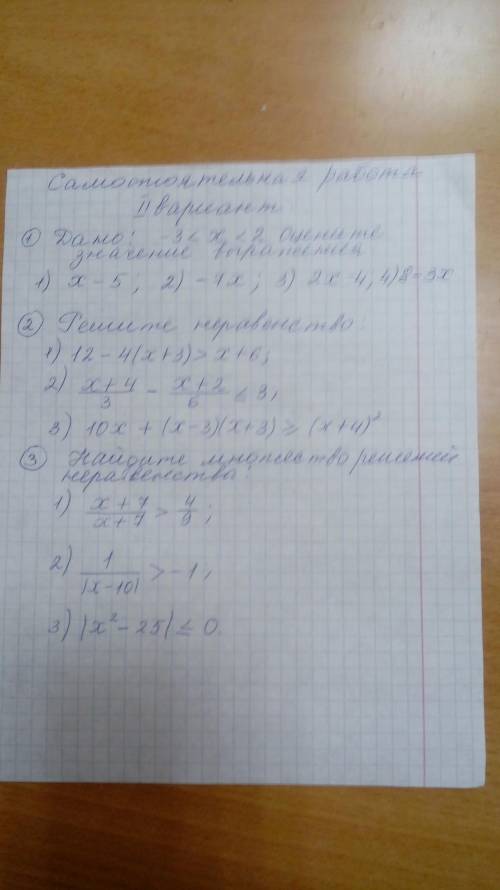 Самостоятельная работа
II вариант
① Дано: -3 < x < 2 Оцените
значение выражений
1) x - 5, 2) -4x; 3) 2x - 4; 4) 8 - 3x
② Решите неравенство:
1) 12 - 4(x+3) > x+6;
2) (x+4)/3 - (x+2)/6 ≤ 3;
3) 10x + (x-3)(x+3) ≥ (x+4)²
③ Найдите множество решений
неравенства:
1) (x+7)/(x+7) > 4/9;
2) 1/|x-10| > -1;
3) |x² - 25| ≤ 0.